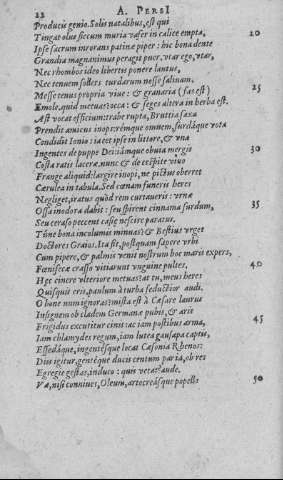 22 A. PERSI
Producis genio. Solis natalibus, est qui
Tingat olus siccum muria vafer in calice empta, 20
Ipse sacrum inrorans patinæ piper: hic bona dente
Grandia magnanimus peragit puer, vtar ego, vtar,
Nec rhombos ideo libertis ponere lautus,
Nec tenuem sollers turdarum nosse saliuam.
Messe tenus propria viue: & granaria (fas est) 25
Emole, quid metuas? occa: & seges altera in herba est.
Ast vocat officium: trabe rupta, Bruttia saxa
Prendit amicus inops: remque omnem, surdáque vota
Condidit Ionio: iacet ipse in littore, & vna
Ingentes de puppe Dei: iámque obuia mergis 30
Costa ratis laceræ, nunc & de cespite viuo
Frange aliquid: largire inopi, ne pictus oberret
Cærulea in tabula. Sed cœnam funeris heres
Negliget, iratus quod rem curtaueris: vrnæ
Ossa inodora dabit: seu spirent cinnama surdum, 35
Seu ceraso peccent casiæ nescire paratus.
Túne bona incolumis minuas? & Bestius vrget
Doctores Graios. Ita fit, postquam sapere vrbi
Cum pipere, & palmis venit nostrum hoc maris expers,
Fœnisecæ crasso vitiarunt vnguine pultes, 40
Hæc cinere vlteriore metuas? at tu, meus heres
Quisquis eris, paulum à turba seductior audi.
O bone num ignoras? missa est à Cæsare laurus
Insignem ob cladem Germanæ pubis, & aris
Frigidus excutitur cinis: ac iam postibus arma, 45
Iam chlamydes regum, iam lutea gausapa captis,
Essedáque, ingentésque locat Cæsonia Rhenos:
Diis igitur, genióque ducis centum paria, ob res
Egregie gestas, induco: quis vetat? aude.
Væ, nisi conniues, Oleum, artocreásque popello 50